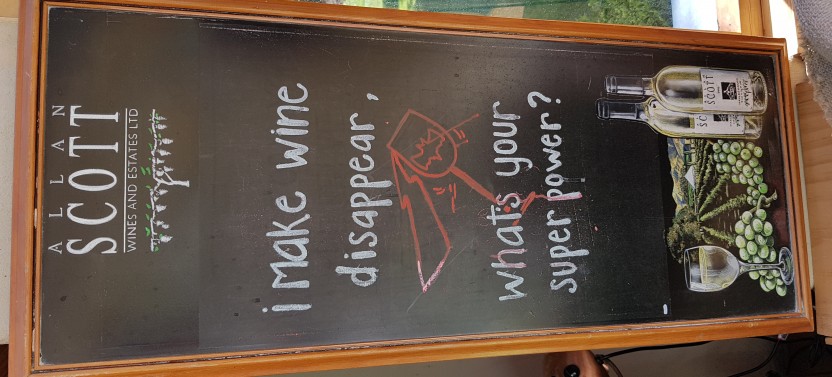 ALLAN
SCOTT
WINES AND ESTATES LTD
i make wine
disappear,
what's your
super power?
SCOTT